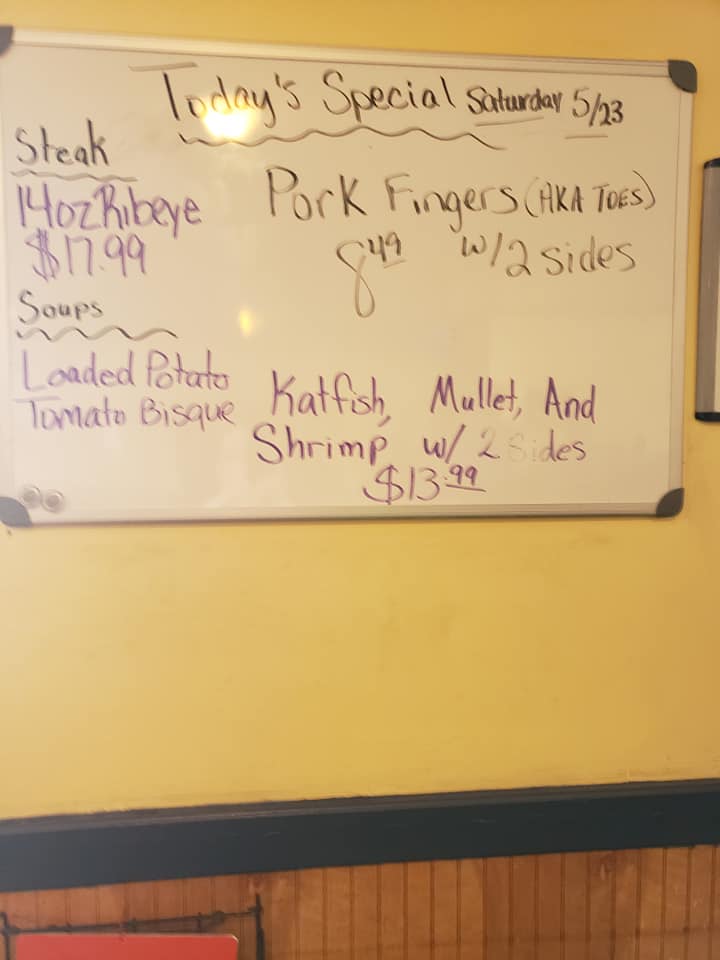 Today's Special Saturday 5/23
Steak
14oz Ribeye
$17.99
Soups
Loaded Potato
Tomato Bisque
Pork Fingers (AKA TOES)
8.49 w/2 sides
Katfish, Mullet, And
Shrimp w/ 2 Sides
$13.99